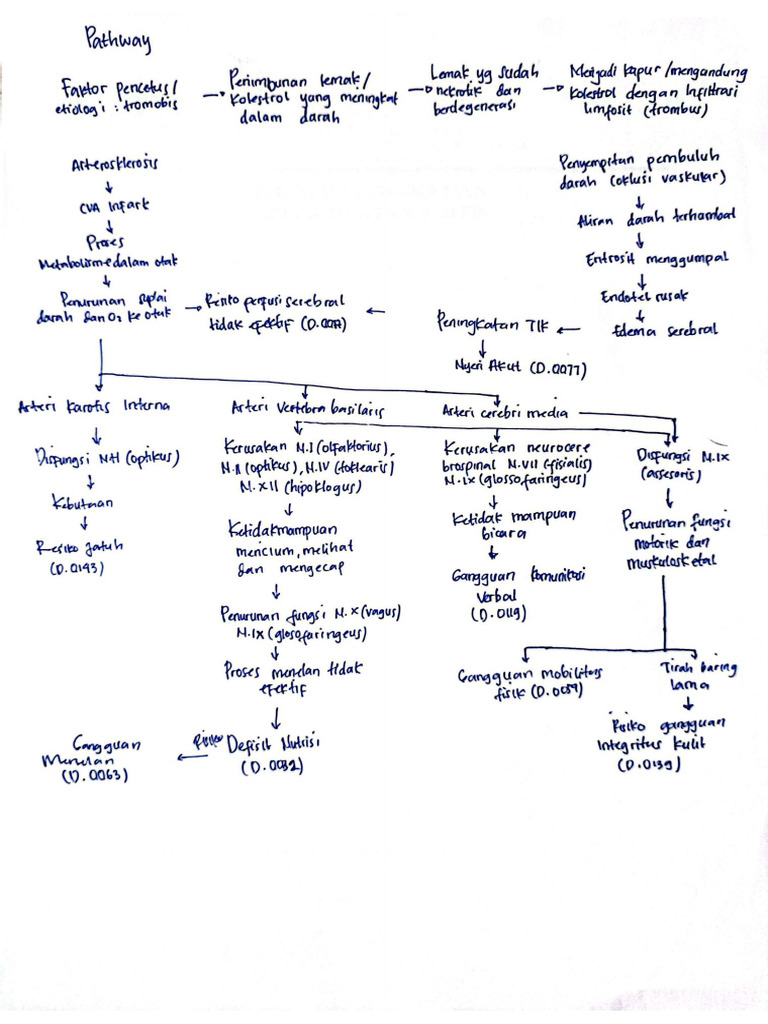 Pathway
Faktor pencetus/
etiologi : tromobis
Penimbunan lemak/
kolestrol yang meningkat
dalam darah
Lemak yg sudah
nekrotik dan
berdegenerasi
Menjadi kapur/mengandung
kolestrol dengan Infiltrasi
limfosit (trombus)
Arterosklerosis
CVA Infark
Proses
Metabolisme dalam otak
Penurunan suplai
darah dan O2 ke otak
Risiko perfusi serebral
tidak efektif (D.0017)
Penyempitan pembuluh
darah (oklusi vaskular)
Aliran darah terhambat
Eritrosit menggumpal
Endotel rusak
Edema serebral
Peningkatan TIK
Nyeri Akut (D.0077)
Arteri karotis Interna
Disfungsi N.II (optikus)
Kebutaan
Resiko jatuh
(D.0143)
Arteri vertebra basilaris
Kerusakan N.I (olfaktorius),
N.II (optikus), N.IV (troklearis)
N.XII (hipoklogus)
Ketidakmampuan
mencium, melihat
dan mengecap
Penurunan fungsi N.X (vagus)
N.IX (glosofaringeus)
Proses menelan tidak
efektif
Risiko Defisit Nutrisi
(D.0032)
Gangguan
Menelan
(D.0063)
Arteri cerebri media
Kerusakan neurocere
brospinal N.VII (fisialis)
N.IX (glossofaringeus)
Ketidak mampuan
bicara
Gangguan komunikasi
verbal
(D.0119)
Disfungsi N.IX
(assesoris)
Penurunan fungsi
motorik dan
muskulosketal
Gangguan mobilitas
fisik (D.0054)
Tirah baring
lama
Risiko gangguan
Integritas kulit
(D.0139)